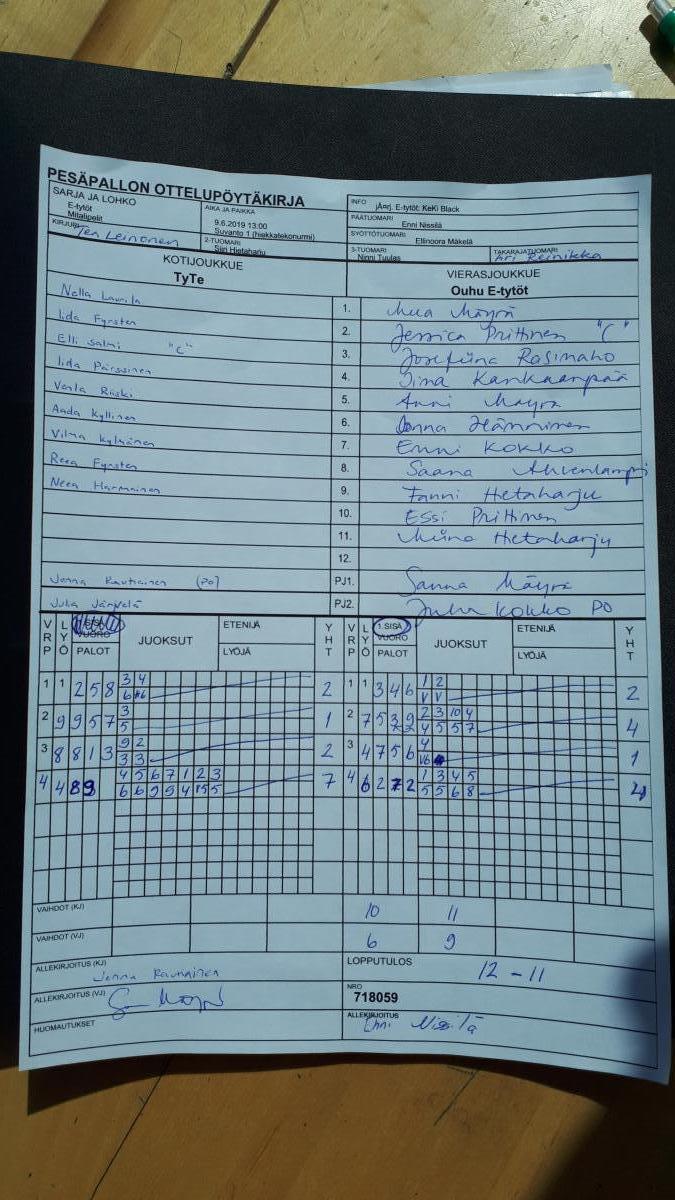 PESÄPALLON OTTELUPÖYTÄKIRJA
SARJA JA LOHKO
E-tytöt
Mitalipelit
AIKA JA PAIKKA
9.6.2019 13:00
Suvanto 1 (hiekkatekonurmi)
KIRJURI
Leinonen
2-TUOMARI
Siiri Hietaharju
INFO jÄ¤rj. E-tytöt: KeKi Black
PÄÄTUOMARI
Enni Nissilä
SYÖTTÖTUOMARI
Ellinoora Mäkelä
3-TUOMARI
Ninni Tuulas
TAKARAJATUOMARI
Reinikka
KOTIJOUKKUE
TyTe
VIERASJOUKKUE
Ouhu E-tytöt
Nella Laurila 1. Mäyrä
Iida Fyrsten 2. Jessica Prittinen "C"
Elli Salmi "C" 3. Josefiina Rasinaho
Iida Pärssinen 4. Kankaanpää
Venla Riiski 5. Anni Mäyrä
Aada Kyllinen 6. Jonna Hänninen
Vilma Kylmänen 7. Enni Kokko
Reea Fyrsten 8. Saana Ahvenlampi
Neea Harmainen 9. Fanni Hietaharju
10. Essi Prittinen
11. Miina Hietaharju
12.
Jonna Rautiainen (PO) PJ1. Sanna Mäyrä
Juha Järvelä PJ2. Juha Kokko PO
VRP LYÖ VUORO PALOT JUOKSUT ETENIJÄ LYÖJÄ YHT
VRP LYÖ 1.SISÄ VUORO PALOT JUOKSUT ETENIJÄ LYÖJÄ YHT
1 1 2 5 8 3 4 2 1 1 3 4 6 1 2 2
V V
2 9 9 5 7 3 1 2 7 5 2 3 10 4 4
5 4 5 5 7
3 8 8 1 3 9 2 2 3 4 7 5 6 4 1
3 3
4 4 8 9 4 5 6 7 1 2 3 7 4 6 2 7 2 1 3 4 5 4
6 6 9 9 4 5 5 5 6 8
VAIHDOT (KJ) 10 11
VAIHDOT (VJ) 6 9
ALLEKIRJOITUS (KJ) Jonna Rautiainen
LOPPUTULOS 12 - 11
ALLEKIRJOITUS (VJ)
NRO
718059
HUOMAUTUKSET
ALLEKIRJOITUS
Enni Nissilä